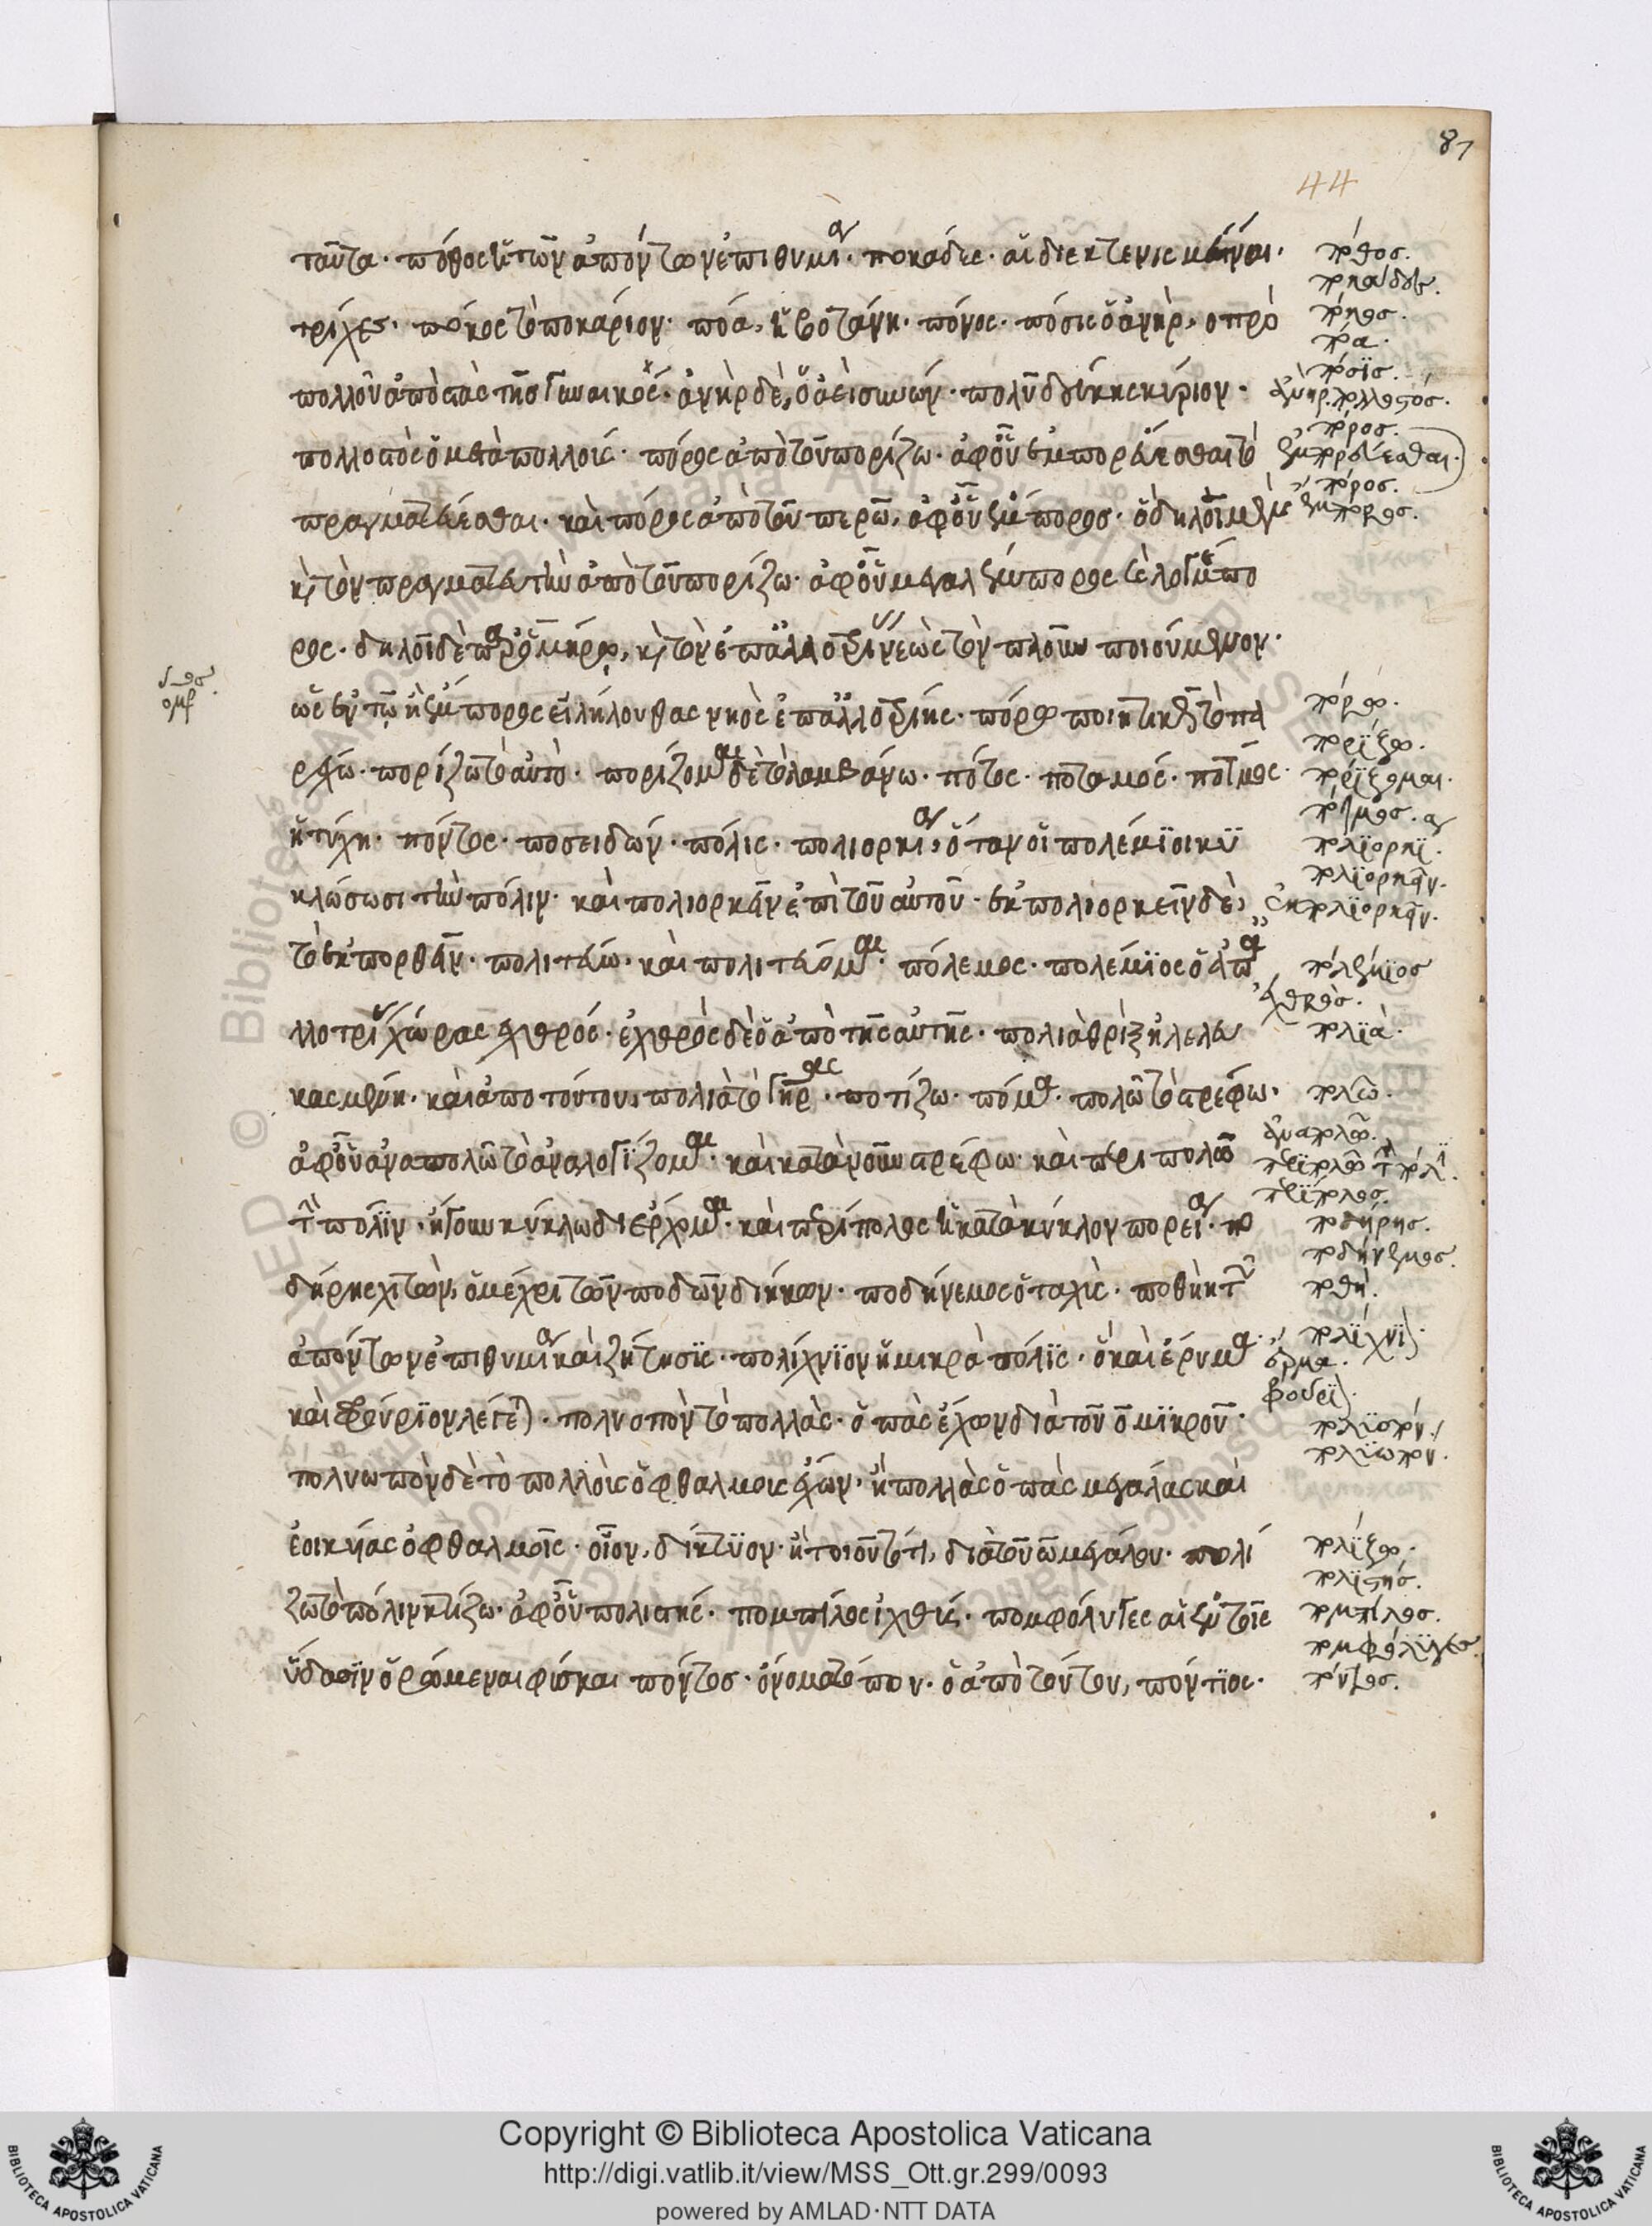 87
44
ταῦτα· πόθος ἡ τῶν ἀπόντων ἐπιθυμία· ποκάδες· αἱ διεκτενισμέναι
τρίχες· πόκος τὸ ποκάριον· πόα, ἡ βοτάνη· πόνος· πόσις ὁ ἀνὴρ, ὁ πρὸ
πολλοῦ ἀποστὰς τῆς γυναικός· ἀνὴρ δὲ, ὁ ἀεὶ συνών·
πολλοστὸς ὁ μετὰ πολλούς· πόρος ἀπὸ τοῦ πορίζω· ἀφοῦ ἐμπορεύεσθαι τὸ
πραγματεύεσθαι· καὶ πόρος ἀπὸ τοῦ περῶ, ἀφοῦ ἔμπορος· ὁ δηλοῖ μὲν
κ τὸν πραγματευτὴν ἀπὸ τοῦ πορίζω· ἀφοῦ
ρος· δηλοῖ δὲ παρ ὁμήρω, κ τὸν ἐπ ἀλλοτρίας νεὼς τὸν πλοῦν ποιούμενον·
ὡς ἐν τῶ ἢ ἔμπορος εἰλήλουθας νηὸς ἐπ ἀλλοτρίης· πόρω ποιητικῶς τὸ πα
ρέχω· πορίζω τὸ αὐτό· πορίζομαι δὲ τὸ λαμβάνω· πότος· ποταμός· πότμος
ἡ τύχη· πόντος· ποσειδών· πόλις· πολιορκία, ὅταν οἱ πολέμιοι κυ
κλώσωσι τὴν πόλιν· καὶ πολιορκεῖν ἐπὶ τοῦ αὐτοῦ· ἐκπολιορκεῖν δὲ,
τὸ ἐκπορθεῖν· πολιτεύω· καὶ πολιτεύομαι· πόλεμος· πολέμιος ὁ ἀπ ἀ
λλοτρίας χώρας ἐχθρός· ἐχθρὸς δὲ ὁ ἀπὸ τῆς αὐτῆς· πολιὰ θρὶξ ἡ λελευ
κασμένη· καὶ ἀπὸ τούτου, πολιὰ τὸ γῆρας· ποτίζω· πόμα· πολῶ τὸ στρέφω·
ἀφοῦ ἀναπολῶ τὸ ἀναλογίζομαι· καὶ κατὰ νοῦν στρέφω· καὶ περιπολῶ
τὴν πόλιν· ἤγουν κύκλω διέρχομαι· καὶ περίπολος ἡ κατὰ κύκλον πορεία· πο
δήρης χιτών, ὁ μέχρι τῶν ποδῶν διήκων· ποδήνεμος ὁ ταχύς· ποθὴ ἡ τῶν
ἀπόντων ἐπιθυμία καὶ ζήτησις· πολίχνιον ἡ μικρὰ πόλις· ὁ καὶ ἔρυμα
καὶ φρούριον λέγεται· πολυοπὸν τὸ πολλὰς ὀπὰς ἔχων διὰ τοῦ ὁ μικροῦ·
πολυωπὸν δὲ τὸ πολλοὺς ὀφθαλμοὺς ἔχων· ἢ πολλὰς ὀπὰς μεγάλας καὶ
ἐοικυίας ὀφθαλμοῖς· οἷον, δίκτυον· ἢ τοιοῦτό τι, διὰ τοῦ ω μεγάλου· πολί
ζω τὸ πόλιν κτίζω· ἀφοῦ πολιστής· πομπίλος ἰχθύς· πομφόλυγες αἱ ἐν τοῖς
ὕδασιν ὁρώμεναι φύσκαι πόντος· ὄνομα τόπου· ὁ ἀπὸ τούτου, πόντιος·
πόθος.
ποκάδες.
πόκος.
πόα.
πόσις.
ἀνὴρ. πολλοστός.
πόρος.
ἐμπορεύεσθαι.
πόρος.
ἔμπορος.
πόρω.
πορίζω.
πορίζομαι.
πότμος.
πολιορκία.
πολιορκεῖν.
ἐκπολιορκεῖν.
πολέμιος
ἐχθρὸς.
πολιὰ.
πολῶ.
ἀναπολῶ.
περιπολῶ τὴν πόλιν.
περίπολος.
ποδήρης.
ποδήνεμος.
ποθὴ.
πολίχνιον.
ἔρυμα.
φρούριον.
πολυοπόν.
πολυωπόν.
πολίζω.
πολιστής.
πομπίλος.
πομφόλυγες.
πόντος.
Copyright © Biblioteca Apostolica Vaticana
http://digi.vatlib.it/view/MSS_Ott.gr.299/0093
powered by AMLAD·NTT DATA